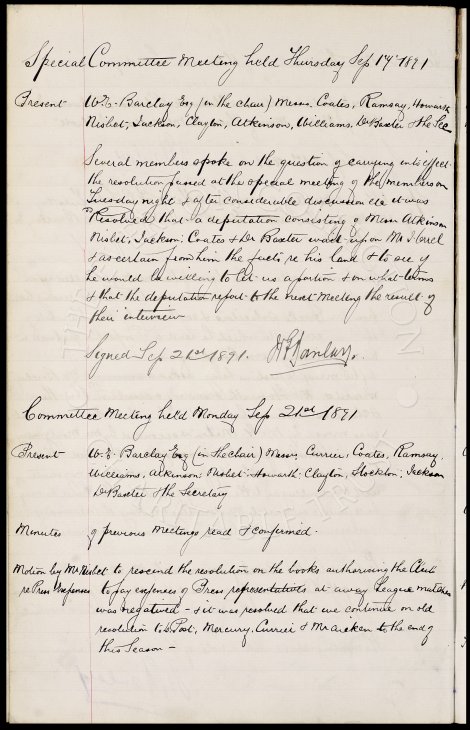 Special Committee Meeting held Thursday Sep 17th 1891
Present W.E. Barclay Esq (in the chair) Messrs. Coates, Ramsay, Howarth
Nisbet, Jackson, Clayton, Atkinson, Williams, Dr Baxter & the Sec
Several members spoke on the question of carrying into effect
the resolution passed at the special meeting of the members on
Tuesday night & after considerable discussion etc it was
Resolved that a deputation consisting of Messrs Atkinson
Nisbet, Jackson, Coates & Dr Baxter wait upon Mr Orrell
& ascertain from him the facts re his land & to see if
he would be willing to let us a portion & on what terms
& that the deputation report to the next meeting the result of
their interview
Signed Sep 21st 1891.
Committee Meeting held Monday Sep 21st 1891
Present W.E. Barclay Esq (in the chair) Messrs, Currier, Coates, Ramsay
Williams, Atkinson, Nisbet, Howarth, Clayton, Stockton, Jackson
Dr Baxter & the Secretary
Minutes of previous meetings read & confirmed.
Motion by Mr Nisbet to rescind the resolution on the books authorising the Club
re Press Expenses to pay expenses of Press representatives at away League matches
was negatived – & it was resolved that we continue on old
resolution to Post, Mercury, Currier & Mr Aicken to the end of
this Season –